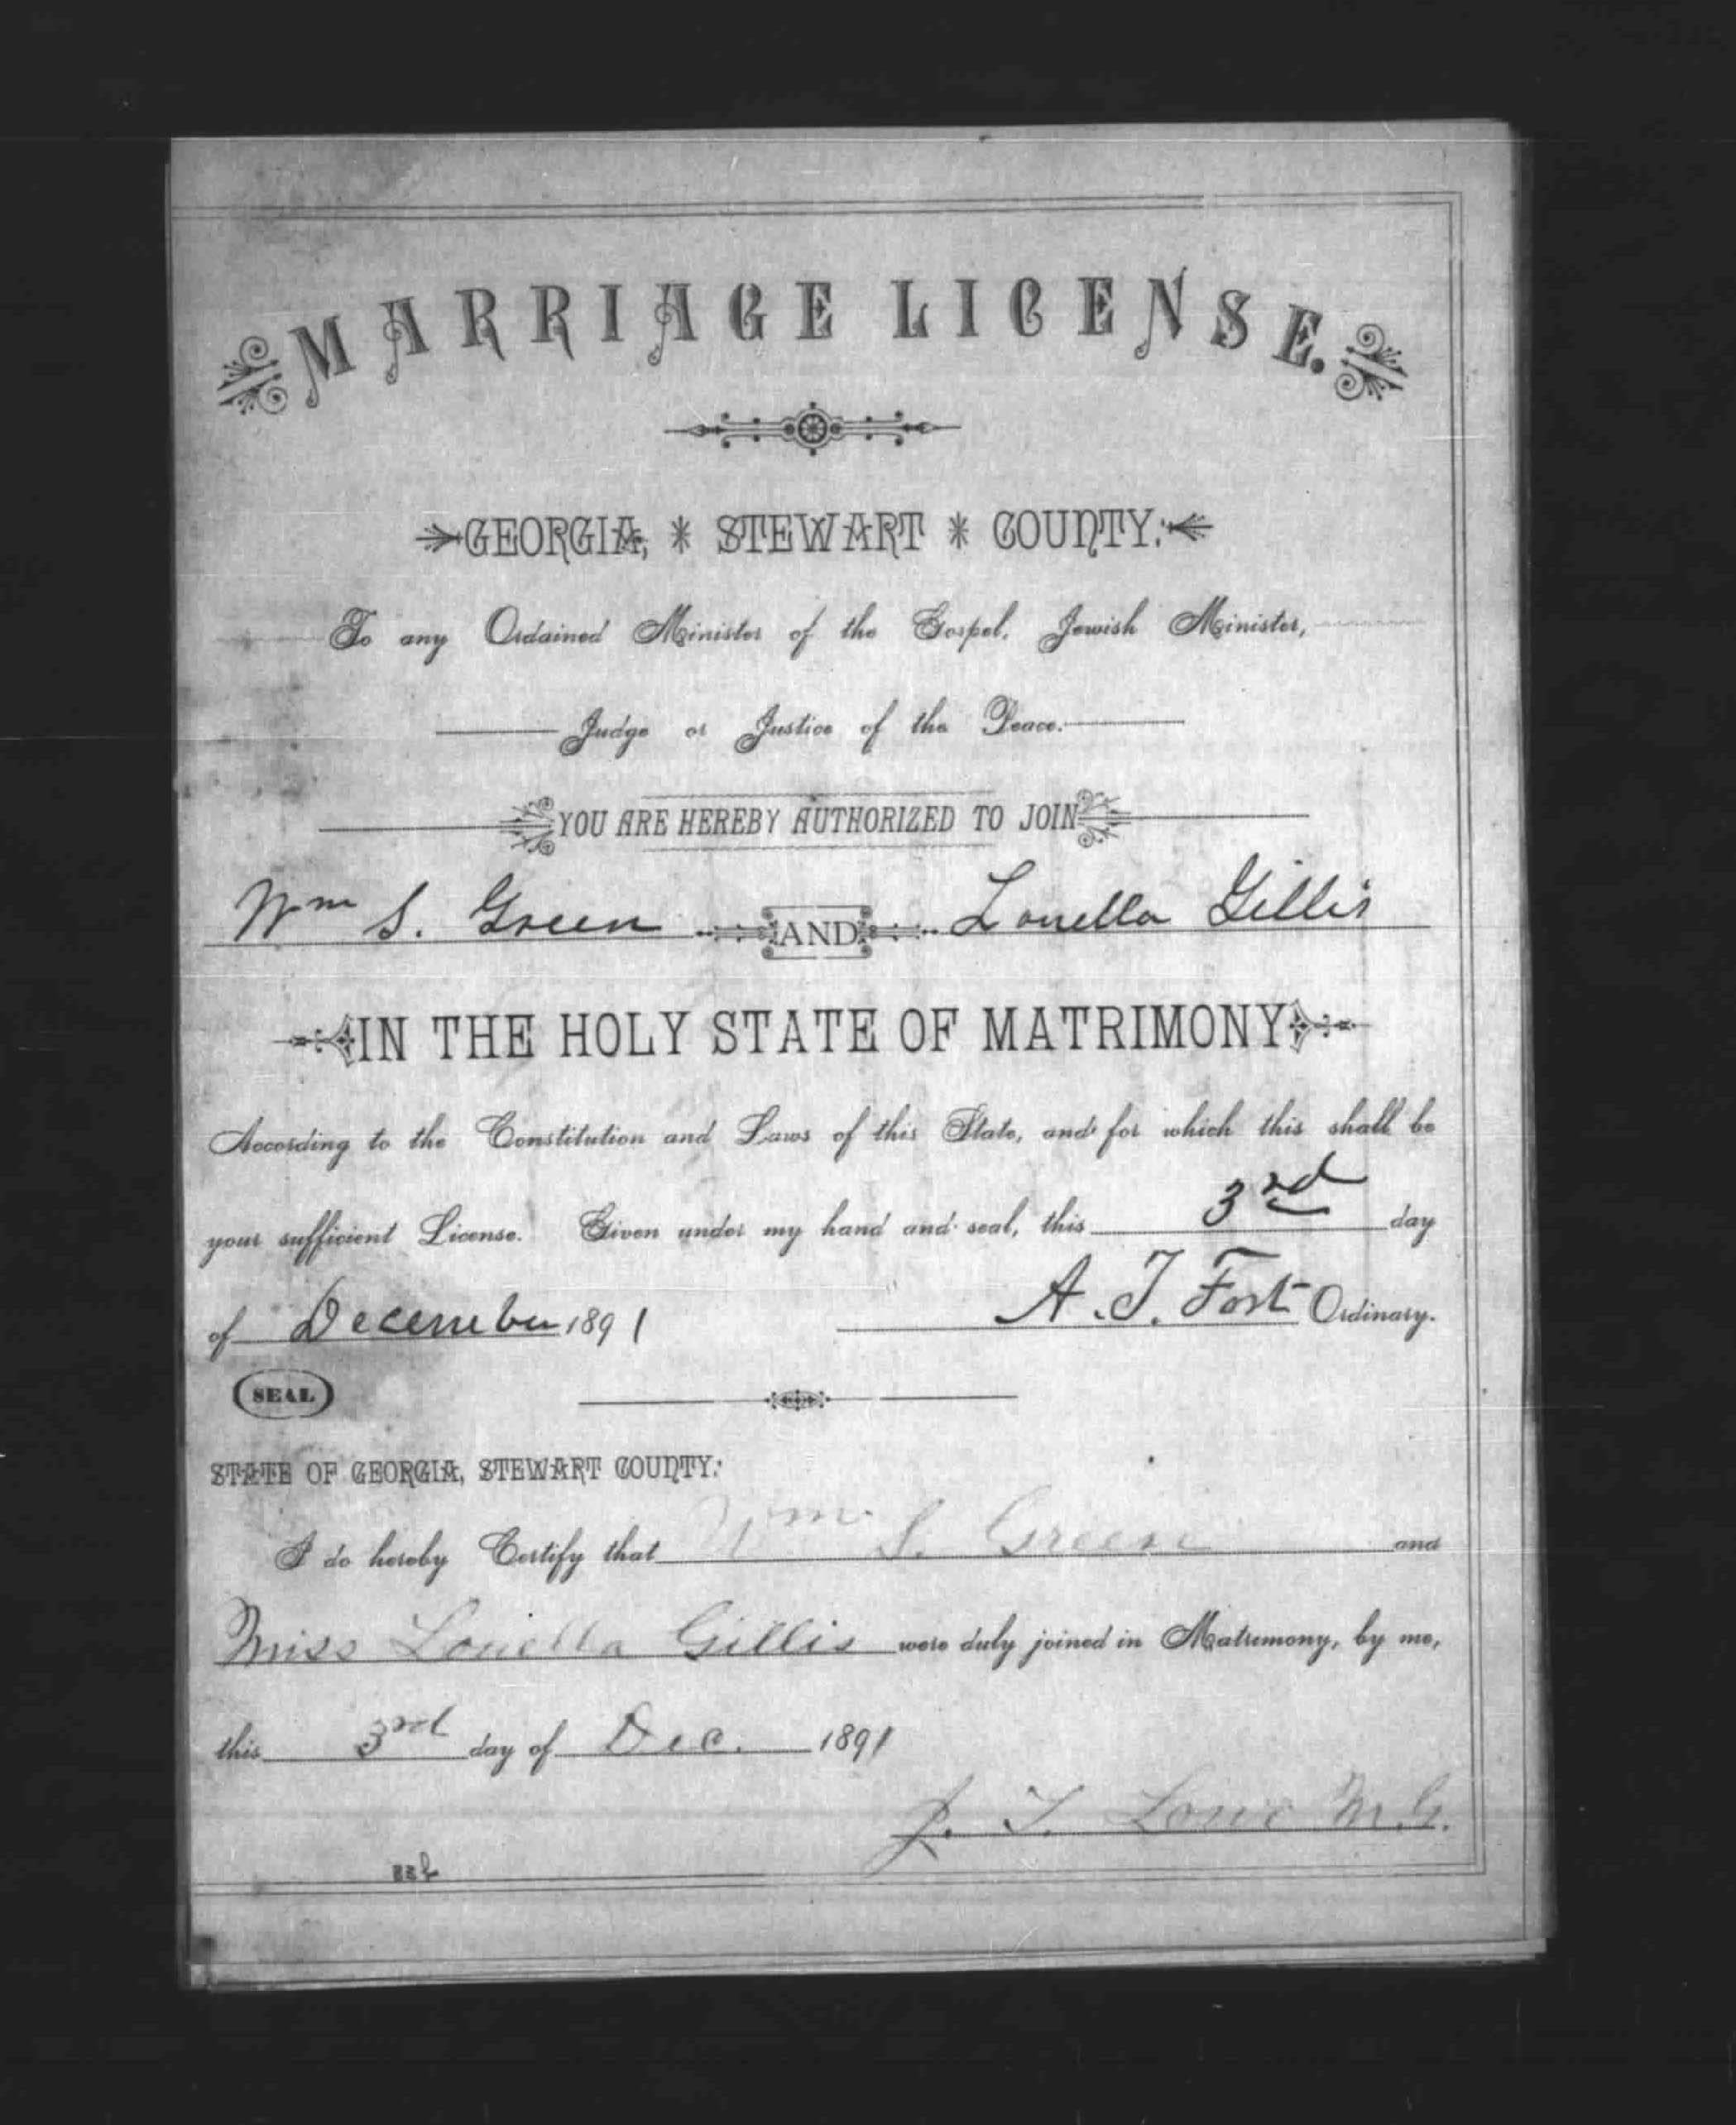 MARRIAGE LICENSE.
GEORGIA, * STEWART * COUNTY:
To any Ordained Minister of the Gospel, Jewish Minister,
Judge or Justice of the Peace.
YOU ARE HEREBY AUTHORIZED TO JOIN
Wm S. Green AND Louella Gillis
IN THE HOLY STATE OF MATRIMONY
According to the Constitution and Laws of this State, and for which this shall be
your sufficient License. Given under my hand and seal, this 3rd day
of December 1891 A. T. Fort Ordinary.
SEAL
STATE OF GEORGIA, STEWART COUNTY:
I do hereby Certify that Wm. S. Green and
Miss Louella Gillis were duly joined in Matrimony, by me,
this 3rd day of Dec. 1891
J. T. Lowe M.G.